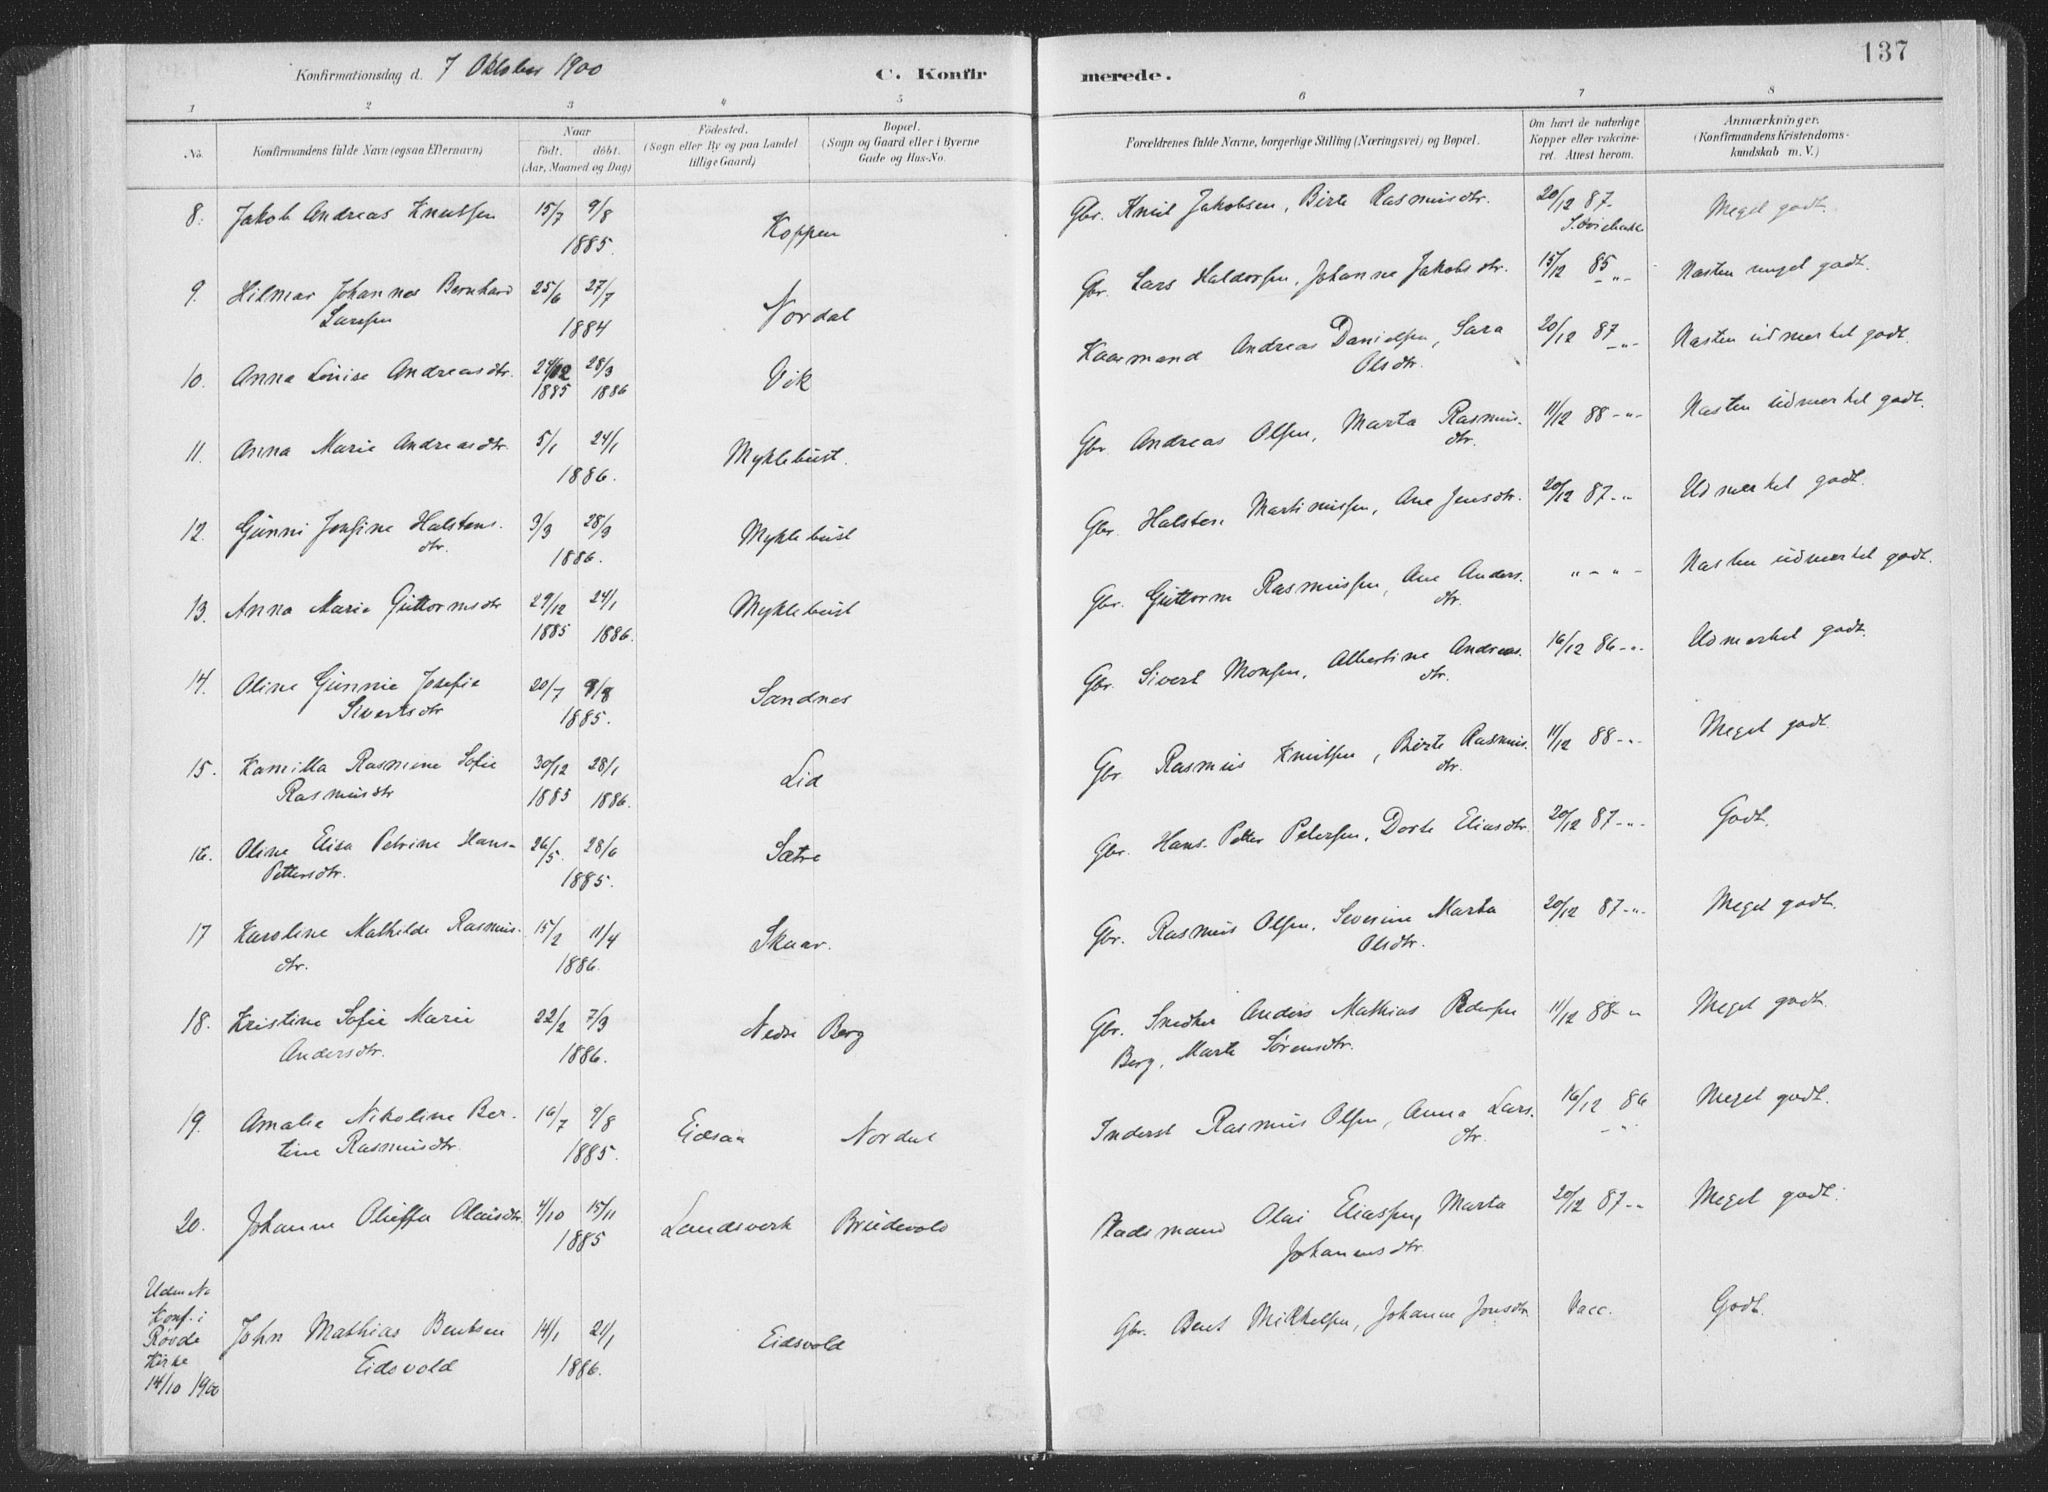 137
Konfirmationsdag d. 7 Oktober 1900 C. Konfirmerede.
1 2 3 4 5 6 7 8
No. Konfirmandens fulde Navn (ogsaa Efternavn) Naar Födt. döbt. (Aar, Maaned og Dag) Födested. (Sogn eller By og paa Landet tillige Gaard) Bopæl. (Sogn og Gaard eller i Byerne Gade og Hus-No. Forældrenes fulde Navne, borgerlige Stilling (Næringsvei) og Bopæl. Om havt de naturlige Kopper eller vakcineret. Attest herom. Anmærkninger. (Konfirmandens Kristendomskundskab m. V.)
8. Jakob Andreas Knutsen 15/7 9/8 1885. Koppen Gbr. Knut Jakobsen, Birte Rasmusdtr. 20/12 87 Meget godt.
9. Hilmar Johannes Bernhard Larssen 25/6 27/7 1884 Nordal Gbr. Lars Haldorsen, Johanne Jakobsdtr. 15/12 85 -"- Næsten meget godt.
10. Anna Louise Andreasdtr. 24/12 1885 28/3 1886 Vik Kaarmand Andreas Danielsen, Sara Olsdtr. 20/12 87 -"- Næsten udmerket godt.
11. Anna Marie Andreasdtr. 5/1 24/1 1886. Myklebust. Gbr. Andreas Olsen, Marta Rasmusdtr. 11/12 88 -"- Næsten udmerket godt.
12. Gunni Josfine Halstensdtr. 3/3 28/3 1886. Myklebust Gbr. Halsten Martinussen, Ane Jensdtr. 20/12 87 -"- Udmerket godt.
13. Anna Marie Guttormsdtr 29/12 1885 24/1 1886. Myklebust Gbr. Guttorm Rasmussen, Ane Andersdtr. " - " - Næsten udmerket godt.
14. Oline Gunnie Josefie Sivertsdtr 20/7 9/8 1885. Sandnes Gbr. Sivert Monsen, Albertine Andreasdtr. 16/12 86 -"- Udmerket godt.
15. Kamilla Rasmine Sofie Rasmusdtr 30/12 1885 28/1 1886. Lid Gbr. Rasmus Knutsen, Birte Rasmusdtr. 11/12 88 -"- Meget godt.
16. Oline Elisa Petrine Hans-Pettersdtr. 26/5. 28/6 1885. Sætre Gbr. Hans-Petter Petersen, Dorte Eliasdtr. 20/12 87 -"- Godt.
17 Karoline Mathilde Rasmusdtr. 15/2 11/4 1886. Skaar. Gbr. Rasmus Olsen, Severine Marta Olsdtr. 20/12 87 -"- Meget godt.
18. Kristine Sofie Marie Andersdtr. 22/2 7/3 1886. Nedre Berg Gbr. Snedker Anders Mathias Pedersen Berg, Marte Sörensdtr. 11/12 88 - " Meget godt.
19. Amalie Nikoline Bertine Rasmusdtr. 16/7 9/8 1885. Eidsaa Nordal Inderst Rasmus Olsen, Anna Larsdtr. 16/12 86 -"- Meget godt.
20. Johanne Oleffa Olaisdtr. 4/10 15/11 1885 Landsverk Brudevold Pladsmand Olai Eliassen, Marta Johannesdtr. 20/12 87 -" Meget godt.
Uden No Konf. i Rovde Kirke 14/10 1900 John Mathias Bentsen Eidsvold 14/1 21/1 1886. Eidsvold Gbr. Bent Mikkelsen, Johanne Jonsdtr Vacc. Godt.